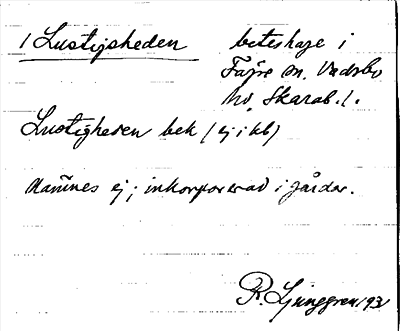 1 Lustigsheden beteshage i
Fägre sn. Vadsbo
hd, Skarab. l.
Lustigheden bek (ej i kb)
Namnes ej; inkorporerad i gårdar.
R. Ljunggren 193